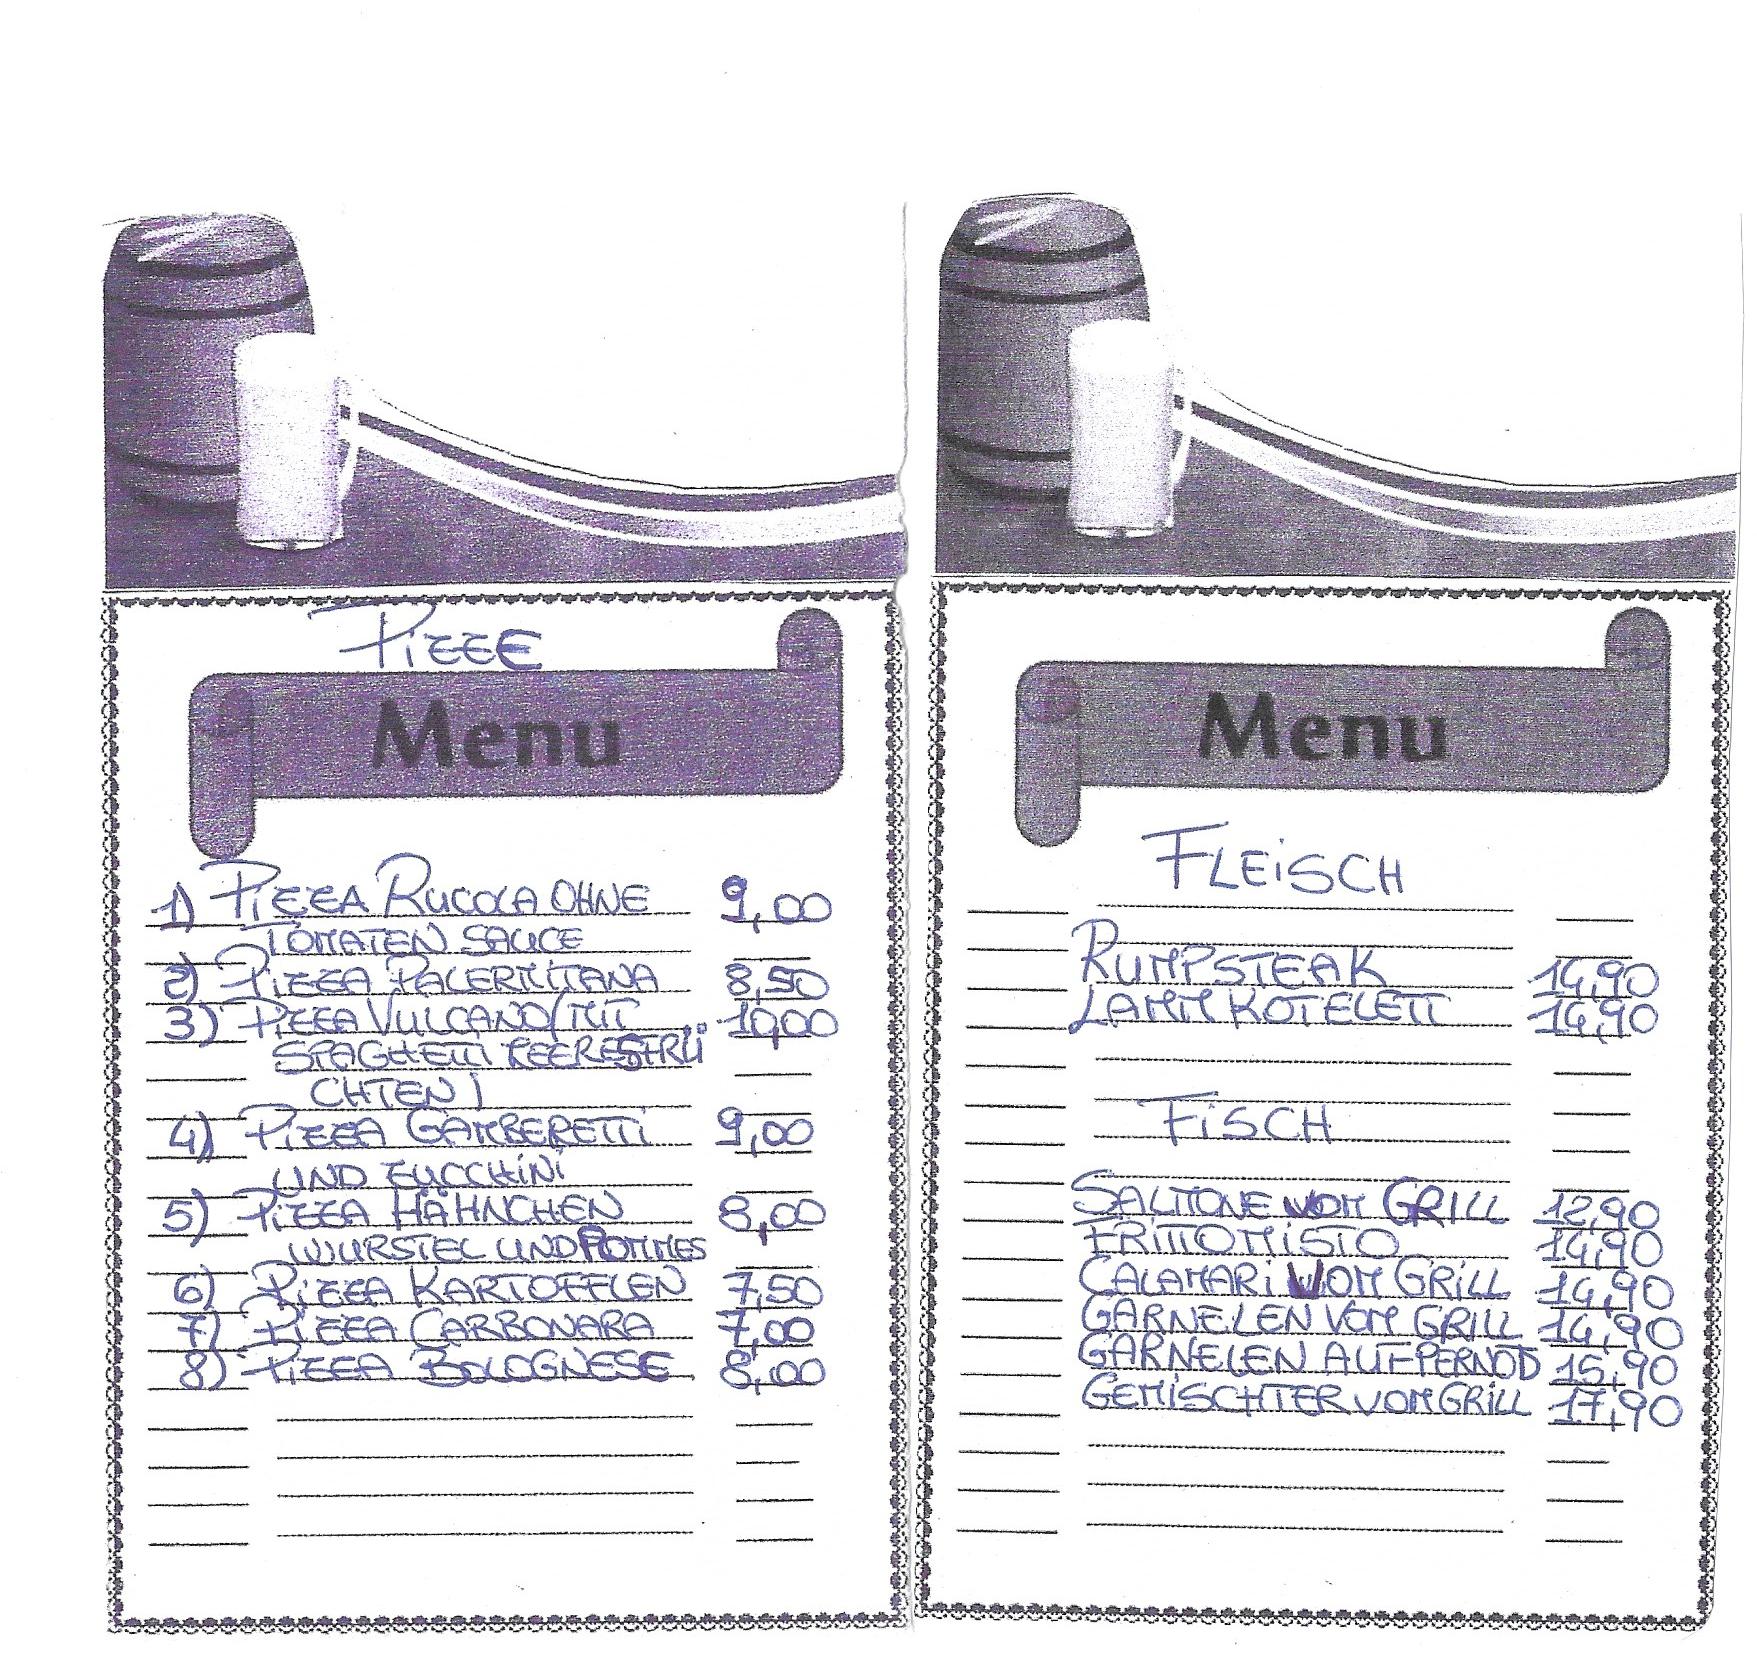 Pizze
Menu
1) Pizza Rucola ohne 9,00
Tomaten sauce
2) Pizza Palermitana 8,50
3) Pizza Vulcano (mit 10,00
Spaghetti Meeresfrü
chten)
4) Pizza Gamberetti 9,00
und Zucchini
5) Pizza Hähnchen 8,00
Wurstel und Pommes
6) Pizza Kartofflen 7,50
7) Pizza Carbonara 7,00
8) Pizza Bolognese 8,00
Menu
Fleisch
Rumpsteak 14,90
Lamm Kotelett 14,90
Fisch
Salmone vom Grill 12,90
Fritto Misto 14,90
Calamari vom Grill 14,90
Garnelen vom Grill 14,90
Garnelen auf Pernod 15,90
Gemischter vom Grill 17,90